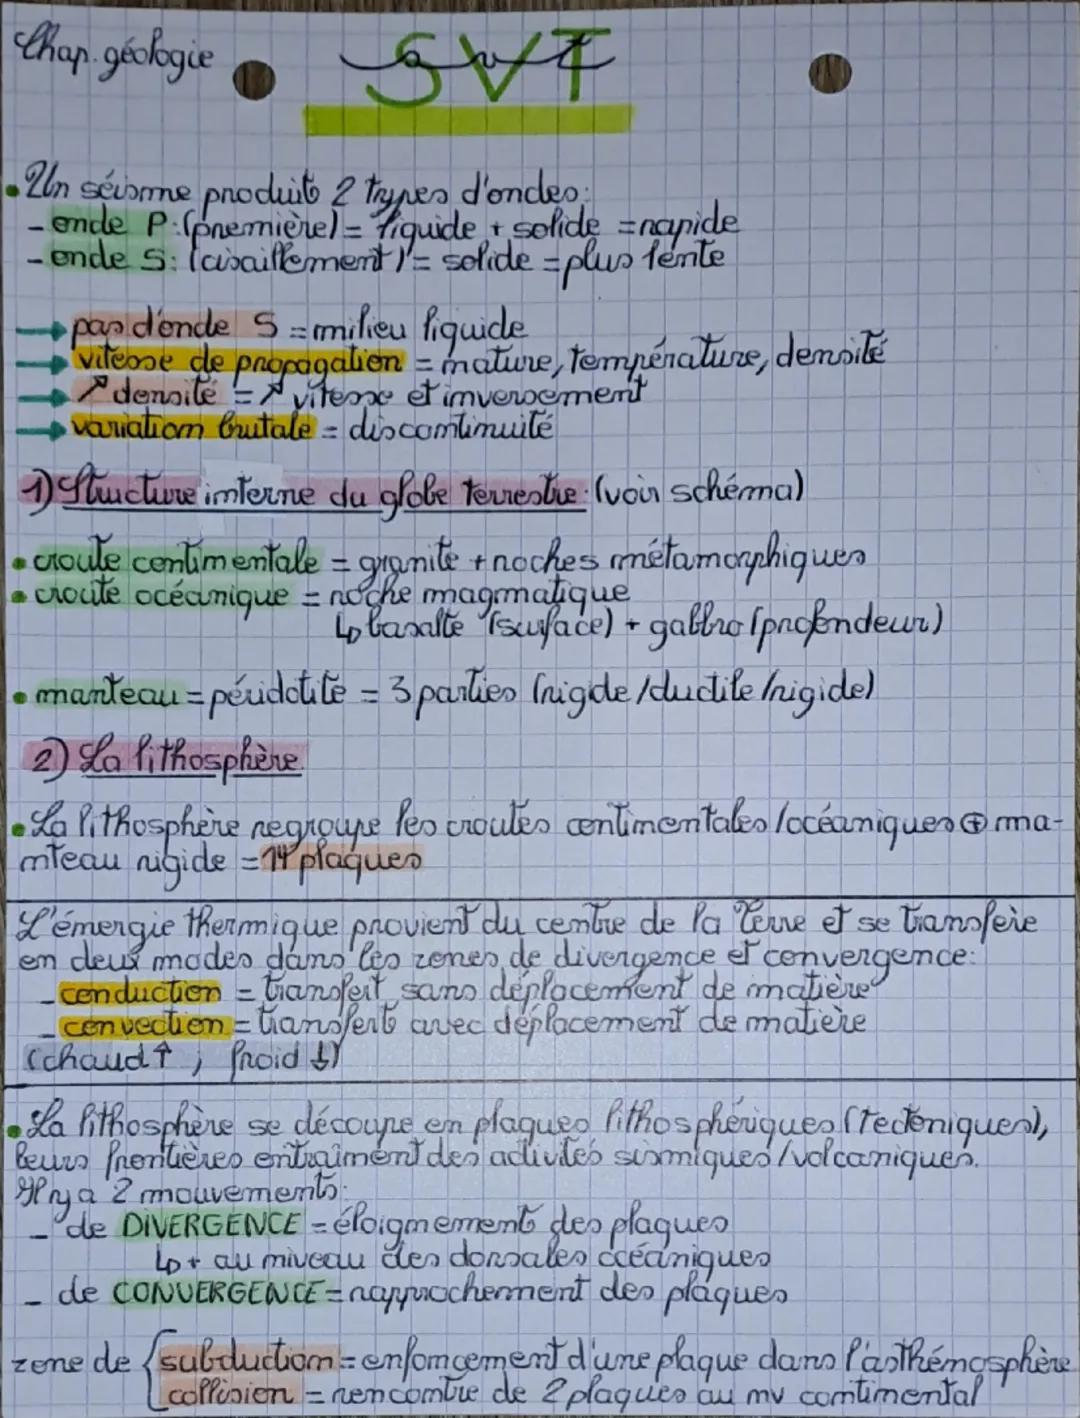 Chap. géologie
SVT
svt
• Un séisme produit 2 types d'ondes:
- onde P: (première) = liquide + solide = rapide
- onde S: (cisaillement) = solide = plus lente
→ pas d'onde S = milieu liquide
→ vitesse de propagation = nature, température, densité
→ ↗ densité = ↗ vitesse et inversement
→ variation brutale = discontinuité
1) Structure interne du globe terrestre: (voir schéma)
• croute continentale = granite + roches métamorphiques
• croute océanique = roche magmatique
↳ basalte (surface) + gabbro (profondeur)
• manteau = péridotite = 3 parties (rigide/ductile/rigide)
2) La lithosphère
• La lithosphère regroupe les croutes continentales/océaniques ⊕ ma-
nteau rigide = 14 plaques
L'énergie thermique provient du centre de la Terre et se transfère
en deux modes dans les zones de divergence et convergence:
- conduction = transfert sans déplacement de matière
- convection = transfert avec déplacement de matière
(chaud ↑ ; froid ↓)
• La lithosphère se découpe en plaques lithosphériques (tectoniques),
leurs frontières entraînent des activités sismiques/volcaniques.
Il y a 2 mouvements:
- de DIVERGENCE = éloignement des plaques
↳ + au niveau des dorsales océaniques
- de CONVERGENCE = rapprochement des plaques
zone de { subduction = enfoncement d'une plaque dans l'asthénosphère
collision = rencontre de 2 plaques au nv continental